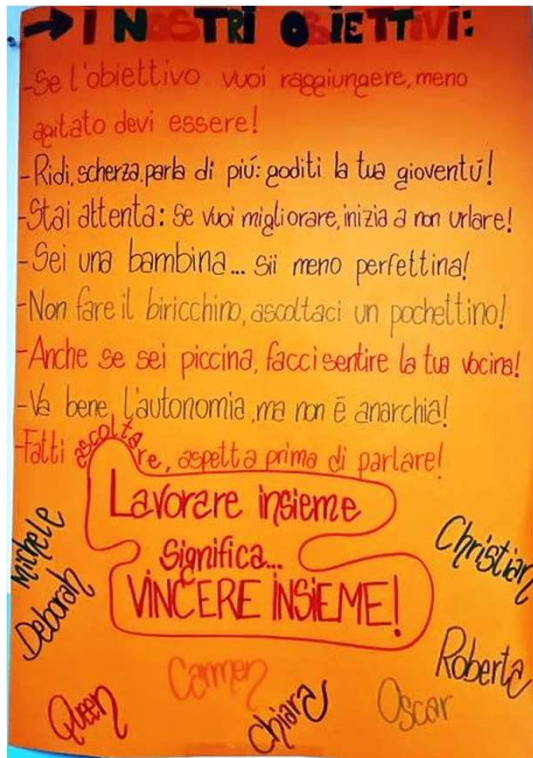 → I NOSTRI OBIETTIVI:
-Se l'obiettivo vuoi raggiungere, meno
agitato devi essere!
-Ridi, scherza, parla di più: goditi la tua gioventù!
-Stai attenta: se vuoi migliorare, inizia a non urlare!
-Sei una bambina... sii meno perfettina!
-Non fare il biricchino, ascoltaci un pochettino!
-Anche se sei piccina, facci sentire la tua vocina!
-Va bene, l'autonomia, ma non è anarchia!
-Fatti ascoltare, aspetta prima di parlare!
Lavorare insieme
significa...
VINCERE INSIEME!
Michele
Deborah
Queen
Carmen
Chiara
Oscar
Roberta
Christian